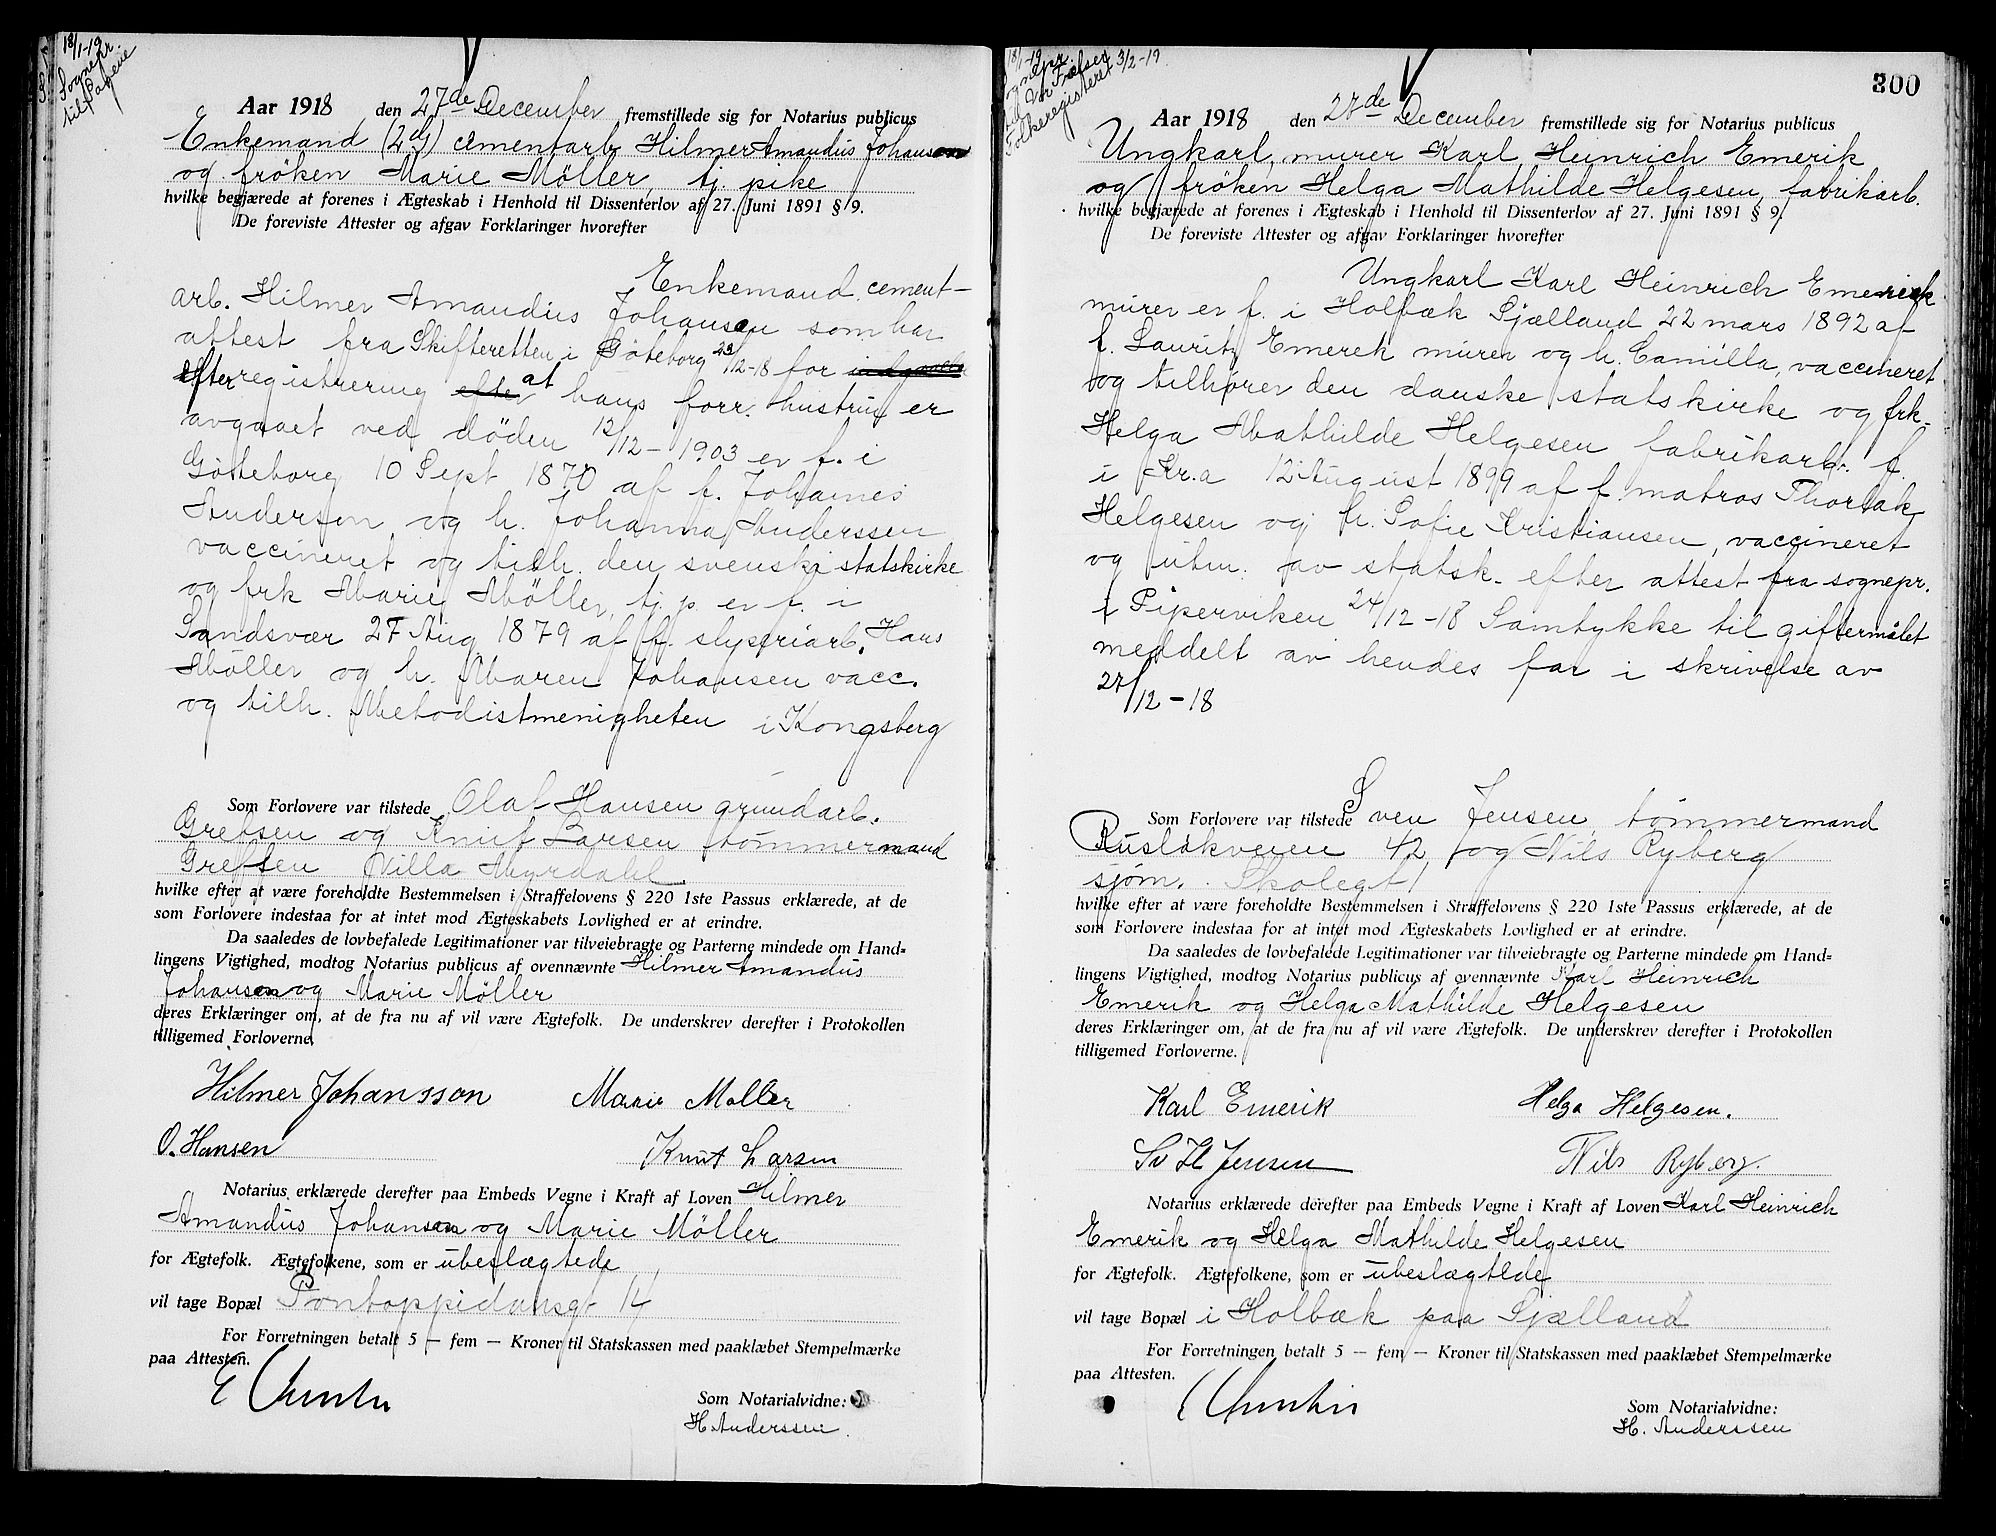 18/1-19
Sognepr.
til Fagene
Aar 1918 den 27de December fremstillede sig for Notarius publicus
Enkemand (2dg) cementarb. Hilmer Amandus Johansen
og frøken Marie Möller, tj. pike
hvilke begjærede at forenes i Ægteskab i Henhold til Dissenterlov af 27. Juni 1891 § 9.
De foreviste Attester og afgav Forklaringer hvorefter
Enkemand, cement-
arb. Hilmer Amandus Johansen som har
attest fra Skifteretten i Göteborg 23/12-18 for
efter registrering efter at hans forr. hustru er
avgaaet ved døden 12/12-1903 er f. i
Göteborg 10 Sept 1870 af f. Johannes
Anderson og h. Johanna Anderssen
vaccineret og tilh. den svenske statskirke
og frk Marie Möller, tj. p. er f. i
Sandsvær 27 Aug 1879 af f. sliperiarb. Hans
Möller og h. Maren Johansen vacc.
og tilh. Metodistmenigheten i Kongsberg
Som Forlovere var tilstede Olaf Hansen grundarb.
Grefsen og Knut Larsen tömmermand
Grefsen Villa Myrdahl
hvilke efter at være foreholdte Bestemmelsen i Straffelovens § 220 1ste Passus erklærede, at de
som Forlovere indestaa for at intet mod Ægteskabets Lovlighed er at erindre.
Da saaledes de lovbefalede Legitimationer var tilveiebragte og Parterne mindede om Hand-
lingens Vigtighed, modtog Notarius publicus af ovennævnte Hilmer Amandus
Johansen og Marie Möller
deres Erklæringer om, at de fra nu af vil være Ægtefolk. De underskrev derefter i Protokollen
tilligemed Forloverne.
Hilmer Johansson Marie Møller
O. Hansen Knut Larsen
Notarius erklærede derefter paa Embeds Vegne i Kraft af Loven Hilmer
Amandus Johansen og Marie Möller
for Ægtefolk. Ægtefolkene, som er ubeslægtede
vil tage Bopæl Pontoppidansgt 14
For Forretningen betalt 5 — fem — Kroner til Statskassen med paaklæbet Stempelmærke
paa Attesten.
Som Notarialvidne:
H. Anderssen
18/1-19
Sognepr.
til Vor Frelser
Folkeregisteret 3/2-19
300
Aar 1918 den 27de December fremstillede sig for Notarius publicus
Ungkarl, murer Karl Heinrich Emerik
og fröken Helga Mathilde Helgesen, fabrikarb.
hvilke begjærede at forenes i Ægteskab i Henhold til Dissenterlov af 27. Juni 1891 § 9.
De foreviste Attester og afgav Forklaringer hvorefter
Ungkarl Karl Heinrich Emerick
murer er f. i Holbæk Sjælland 22 mars 1892 af
f. Lauritz Emerek murer og h. Camilla, vaccineret
og tilhører den danske statskirke og frk.
Helga Mathilde Helgesen fabrikarb. f.
i Kr.a 12 August 1899 af f. matros Thorlak
Helgesen og h. Sofie Kristiansen, vaccineret
og utm. av statsk. efter attest fra sognepr.
i Piperviken 24/12-18 Samtykke til giftermålet
meddelt av hendes far i skrivelse av
27/12-18
Som Forlovere var tilstede Sven Jensen, tømmermand
Rusløkveien 42, og Nils Ryberg
sjøm. Skolegt 1
hvilke efter at være foreholdte Bestemmelsen i Straffelovens § 220 1ste Passus erklærede, at de
som Forlovere indestaa for at intet mod Ægteskabets Lovlighed er at erindre.
Da saaledes de lovbefalede Legitimationer var tilveiebragte og Parterne mindede om Hand-
lingens Vigtighed, modtog Notarius publicus af ovennævnte Karl Heinrich
Emerik og Helga Mathilde Helgesen
deres Erklæringer om, at de fra nu af vil være Ægtefolk. De underskrev derefter i Protokollen
tilligemed Forloverne.
Karl Emerik Helga Helgesen.
Sv H Jensen Nils Ryberg.
Notarius erklærede derefter paa Embeds Vegne i Kraft af Loven Karl Heinrich
Emerik og Helga Mathilde Helgesen
for Ægtefolk. Ægtefolkene, som er ubeslægtede
vil tage Bopæl i Holbæk paa Sjælland
For Forretningen betalt 5 — fem — Kroner til Statskassen med paaklæbet Stempelmærke
paa Attesten.
Som Notarialvidne:
H. Anderssen